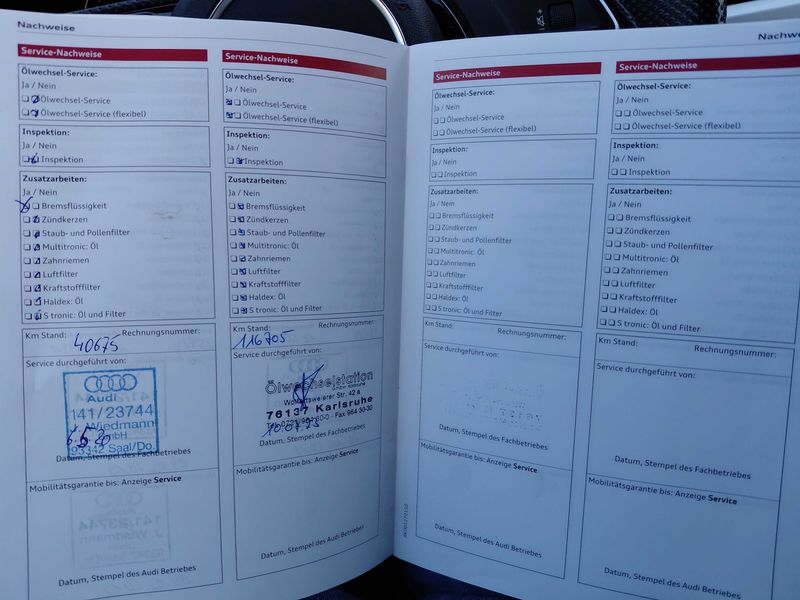 Nachweise
Service-Nachweise
Ölwechsel-Service:
Ja / Nein
Ölwechsel-Service
Ölwechsel-Service (flexibel)
Inspektion:
Ja / Nein
Inspektion
Zusatzarbeiten:
Ja / Nein
Bremsflüssigkeit
Zündkerzen
Staub- und Pollenfilter
Multitronic: Öl
Zahnriemen
Luftfilter
Kraftstofffilter
Haldex: Öl
S tronic: Öl und Filter
Km Stand: Rechnungsnummer:
40675
Service durchgeführt von:
Audi
141/23744
J. Wiedmann
GmbH
6.5.20
93342 Saal/Do.
Datum, Stempel des Fachbetriebes
Mobilitätsgarantie bis: Anzeige Service
Datum, Stempel des Audi Betriebes
Service-Nachweise
Ölwechsel-Service:
Ja / Nein
Ölwechsel-Service
Ölwechsel-Service (flexibel)
Inspektion:
Ja / Nein
Inspektion
Zusatzarbeiten:
Ja / Nein
Bremsflüssigkeit
Zündkerzen
Staub- und Pollenfilter
Multitronic: Öl
Zahnriemen
Luftfilter
Kraftstofffilter
Haldex: Öl
S tronic: Öl und Filter
Km Stand: Rechnungsnummer:
116705
Service durchgeführt von:
Ölwechselstation
Str. 42 a
76137 Karlsruhe
Fax 964 30-30
10.07.23
Datum, Stempel des Fachbetriebes
Mobilitätsgarantie bis: Anzeige Service
Datum, Stempel des Audi Betriebes
Nachwe
Service-Nachweise
Ölwechsel-Service:
Ja / Nein
Ölwechsel-Service
Ölwechsel-Service (flexibel)
Inspektion:
Ja / Nein
Inspektion
Zusatzarbeiten:
Ja / Nein
Bremsflüssigkeit
Zündkerzen
Staub- und Pollenfilter
Multitronic: Öl
Zahnriemen
Luftfilter
Kraftstofffilter
Haldex: Öl
S tronic: Öl und Filter
Km Stand: Rechnungsnummer:
Service durchgeführt von:
Datum, Stempel des Fachbetriebes
Mobilitätsgarantie bis: Anzeige Service
Datum, Stempel des Audi Betriebes
Service-Nachweise
Ölwechsel-Service:
Ja / Nein
Ölwechsel-Service
Ölwechsel-Service (flexibel)
Inspektion:
Ja / Nein
Inspektion
Zusatzarbeiten:
Ja / Nein
Bremsflüssigkeit
Zündkerzen
Staub- und Pollenfilter
Multitronic: Öl
Zahnriemen
Luftfilter
Kraftstofffilter
Haldex: Öl
S tronic: Öl und Filter
Km Stand: Rechnungsnummer:
Service durchgeführt von:
Datum, Stempel des Fachbetriebes
Mobilitätsgarantie bis: Anzeige Service
Datum, Stempel des Audi Betriebes